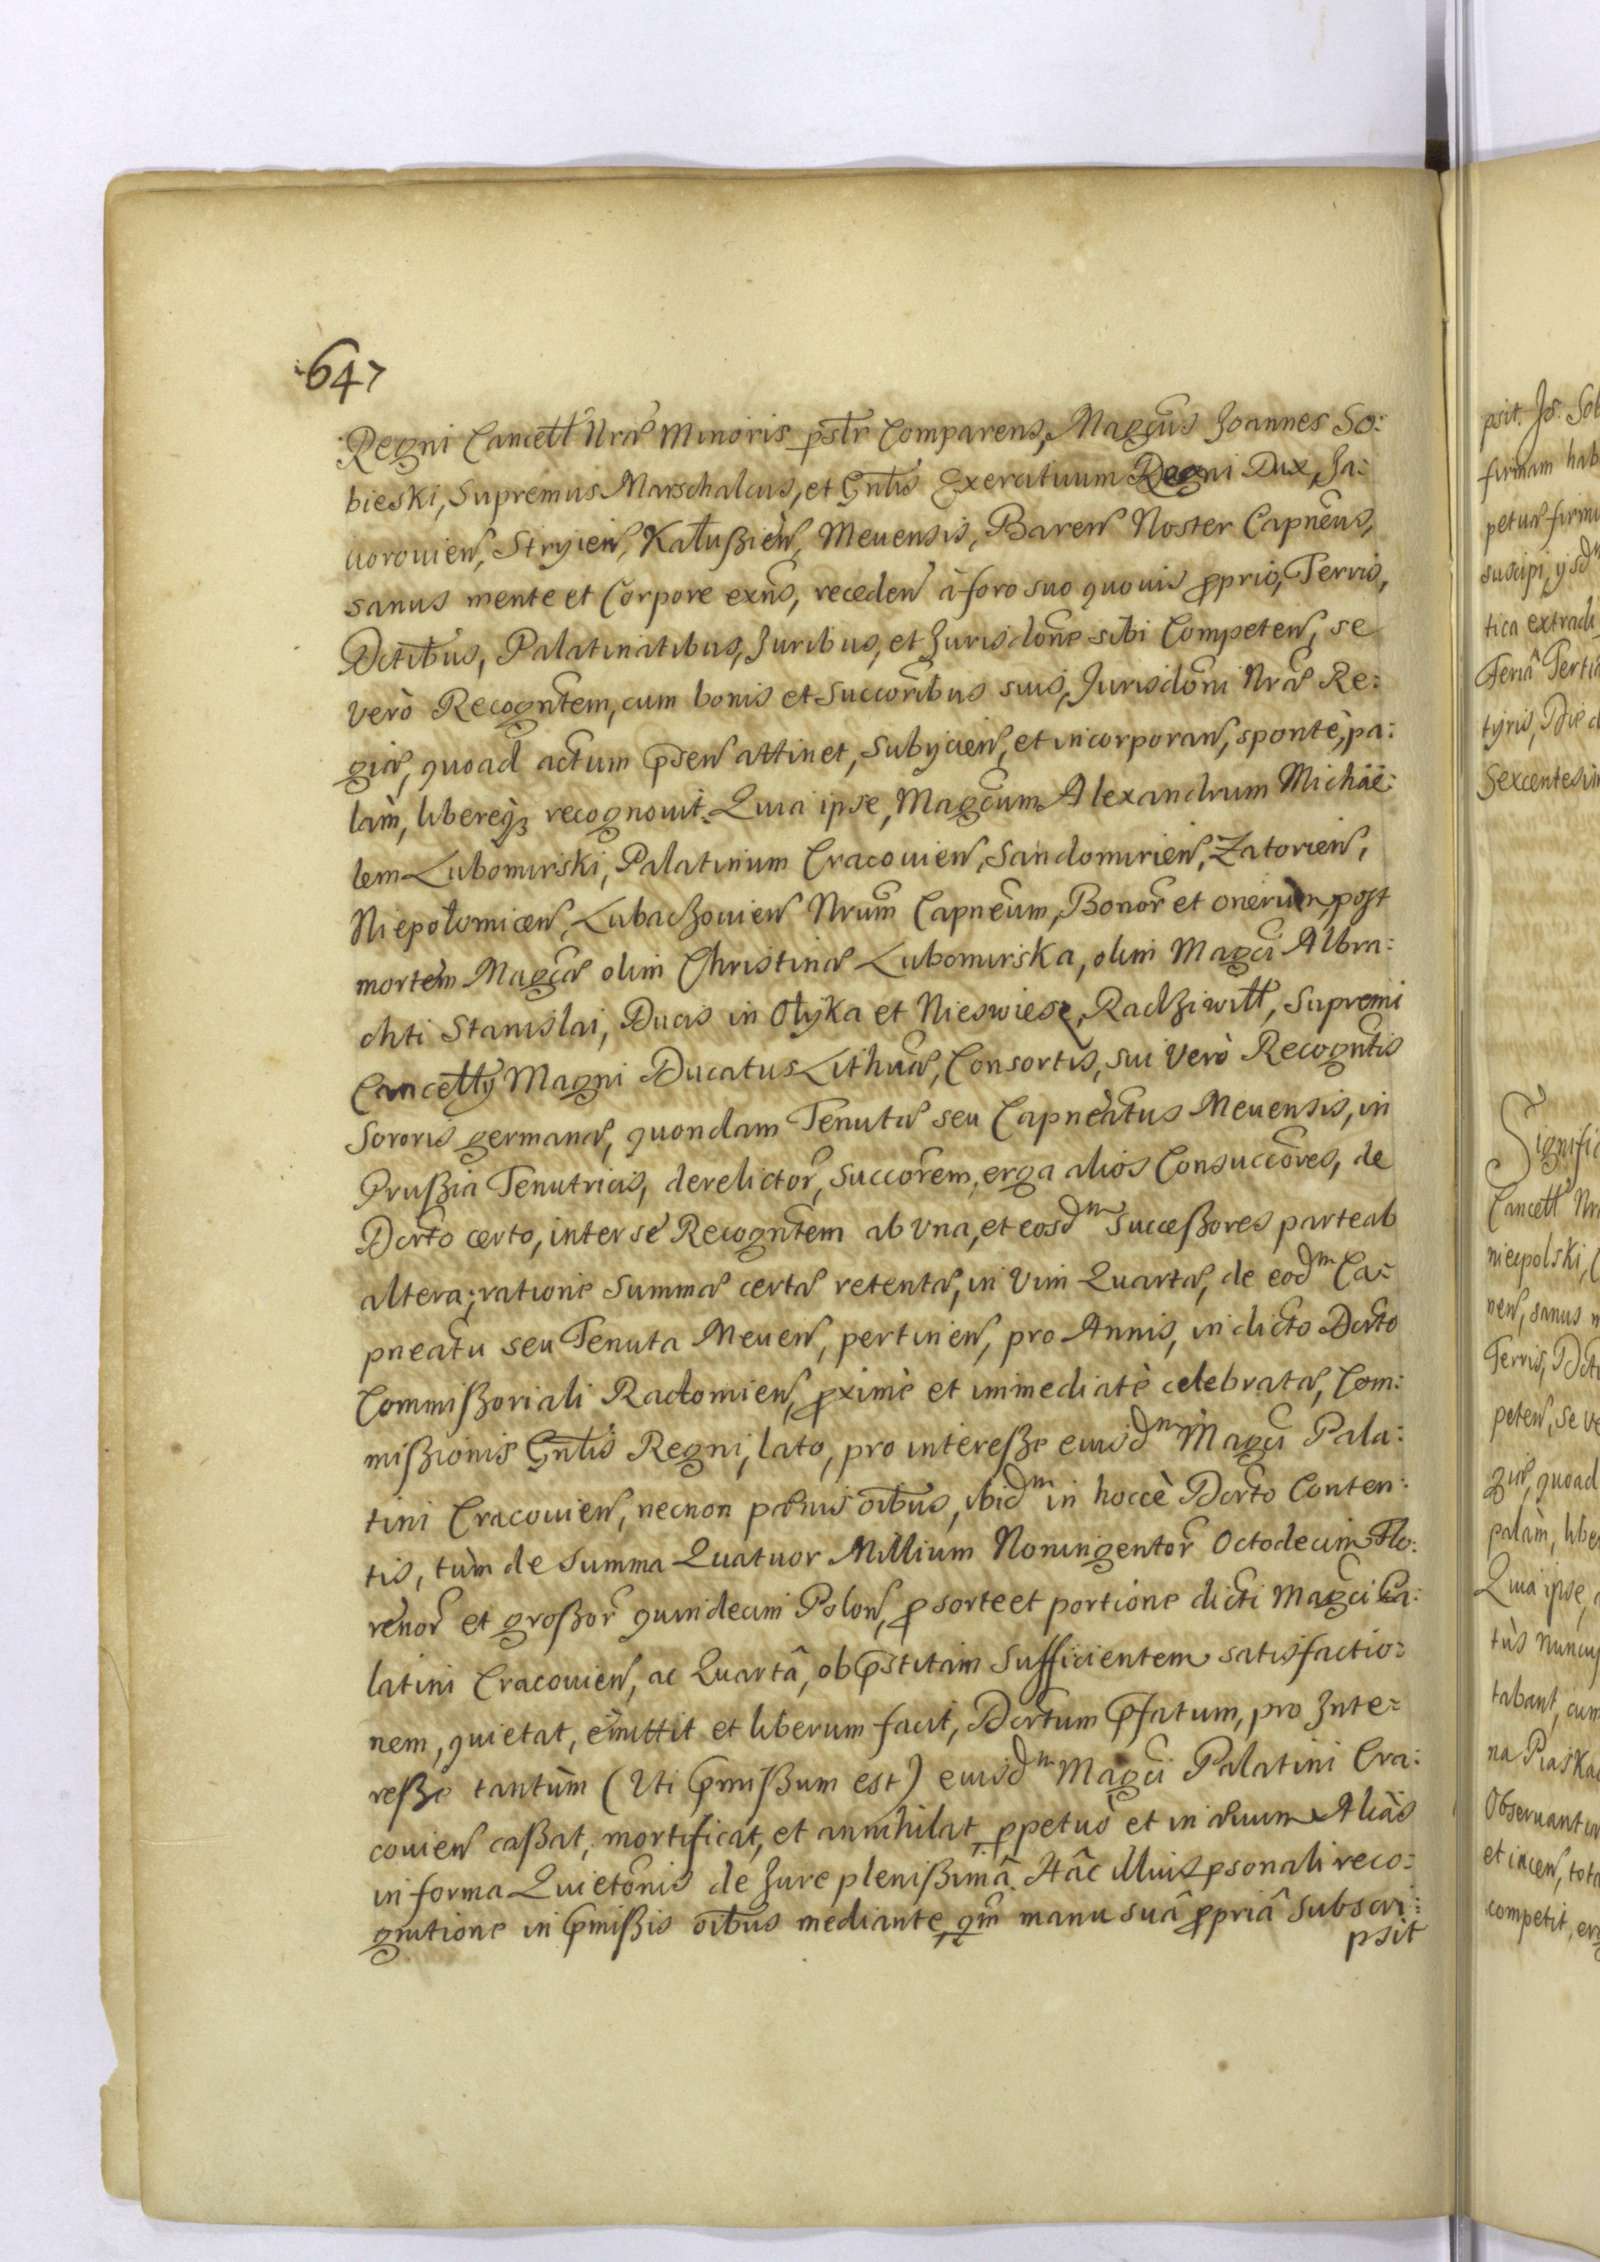 647
Regni Cancell Nrae Minoris pstr Comparens, Magcus Joannes So:
bieski, Supremus Marschalcus, et Gntis Exercituum Regni Dux, Ja:
uorouien, Stryien, Kałußien, Meuensis, Baren Noster Capneus,
sanus mente et Corpore exns, receden à foro suo quouis proprio, Terris,
Dctibus, Palatinatibus, Juribus, et Jurisdone sibi Competen, se
verò Recogntem, cum bonis et Succoribus suis, Jurisdoni Nrae Re:
giae, quoad actum psen attinet, Subyicien, et incorporan, spontè, pa:
làm, libereq3 recognouit. Quia ipse, Magcum Alexandrum Michäë:
lem Lubomirski, Palatinum Cracouien, Sandomirien, Zatorien,
Niepołomicen, Lubaczouien Nrum Capneum, Bonor et onerum, post
mortem Magcae olim Christinae Lubomirska, olim Magci Albra:
chti Stanislai, Ducis in Ołyka et Nieswiesz, Radziwiłł, Supremi
Cancelly Magni Ducatus Lithuae, Consortis, sui Verò Recogntis
Sororis germanae, quondam Tenutae seu Capneatus Meuensis, in
Prußia Tenutricis, derelictor, Succorem, erga alios Consuccores, de
Dcrto certo, inter se Recogntem ab vna, et eosdm Succeßores parte ab
altera; ratione Summae certae retentae, in Vim Quartae, de eodm Ca:
pneatu seu Tenuta Meuen, pertinen, pro Annis, in dicto Dcrto
Commißoriali Radomien, proximè et immediatè celebratae, Com:
mißionis Gntis Regni, lato, pro intereße eiusdm Magci Pala:
tini Cracouien, necnon paenis oibus, ibidm in hoccè Dcrto Conten:
tis, tùm de Summa Quatuor Millium Noningentor Octodecim Flo:
renor et großor quindecim Polon, pro sorte et portione dicti Magci Pa:
latini Cracouien, ac Quartâ, ob pstitam Sufficientem satisfactio:
nem, quietat, emittit et liberum facit, Dcrtum pfatum, pro Inte:
reße tantùm (Uti pmißum est) eiusdm Magci Palatini Cra:
couien caßat, mortificat, et annihilat perpetuò et in aeuum Aliàs
in forma Quietonis de Jure plenißimâ. Hâc illius psonali reco:
gnitione in pmißis oibus mediante, qm manu suâ propriâ Subscri:
psit
psit. Js. Sob
firmam hab
petuae firmi
suscipi, ysdm
tica extradi
Feriâ Tertia
tyris, Die d
Sexcentesim
Signific
Cancell Nr
niecpolski, C
nen, sanus m
Terris, Dcti
peten, se ve
giae, quoad
palàm, liber
Quia ipse,
tùs nuncup
tabant, cum
na Piaskac
Obseruantin
et incen, tota
competit, erg